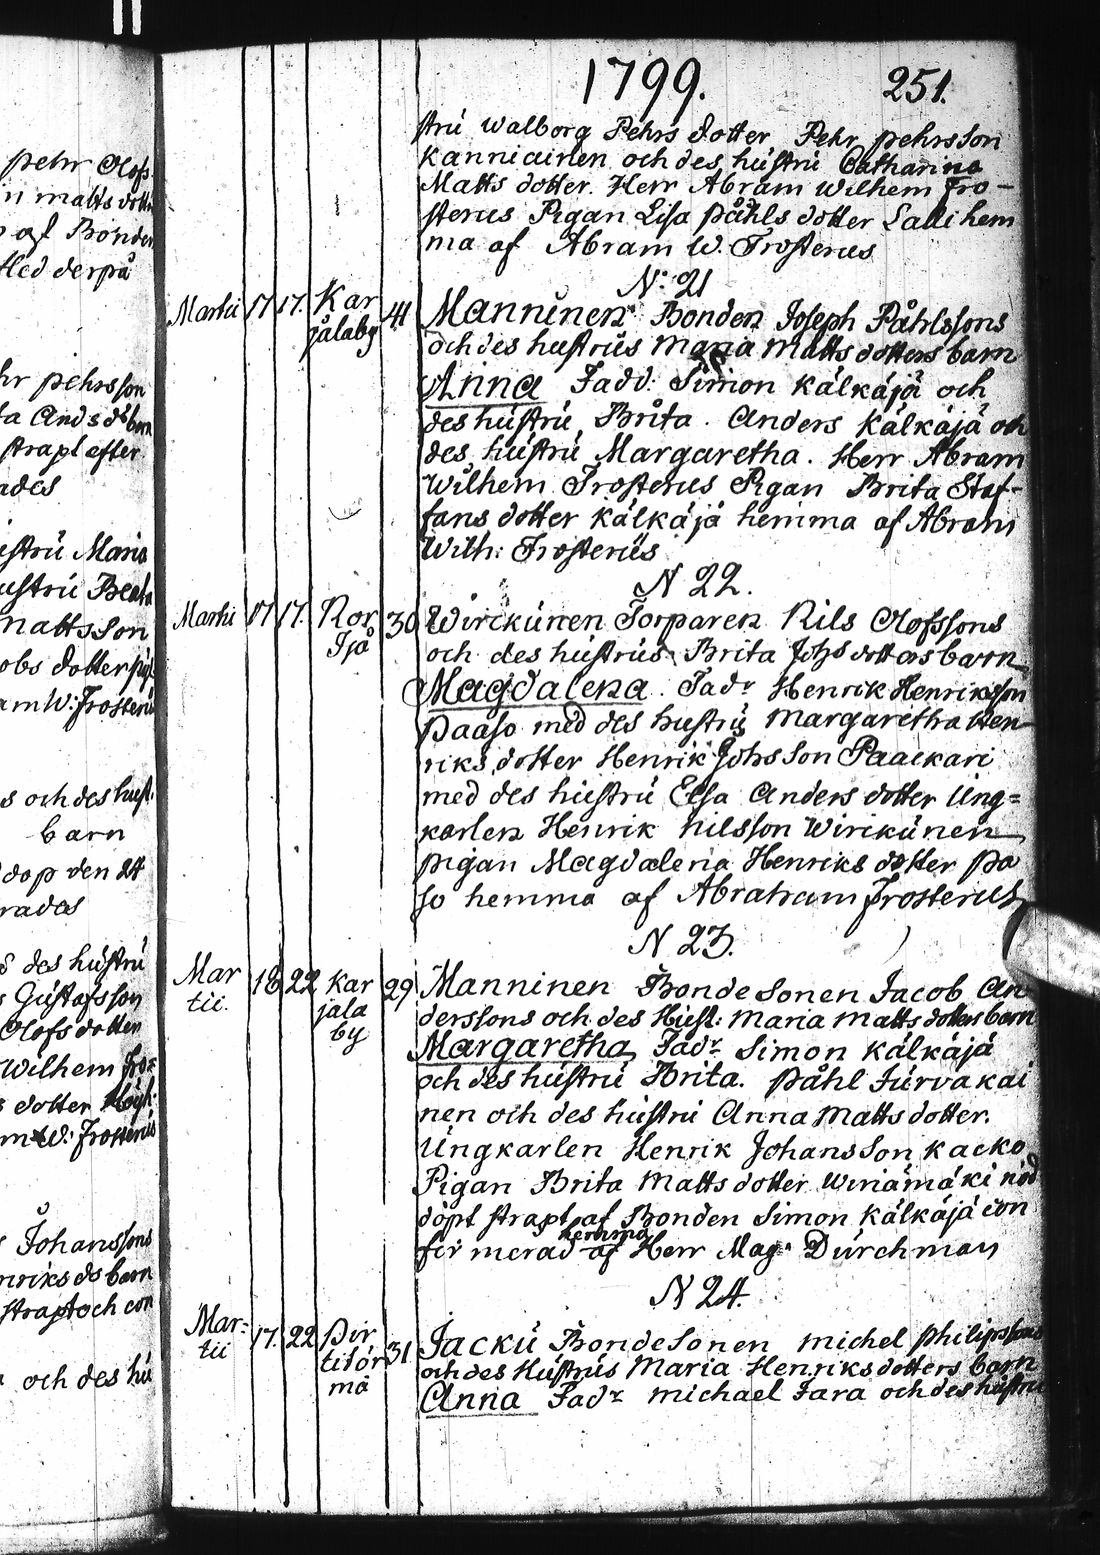 Pehr Olofs
n matts dott
af Bonden
derpå
hr pehrsson
ta Ands d barn
strapt efter
ades
ustru Maria
ustru Beata
mattsson
obs dotter
am W: Frosteriu
s och des hust.
barn
dop den 24
rades
des hustru
s Gustafsson
Olofs dotter
Wilhem Fro=
s dotter
m W: Frosterius
s Johanssons
nriks ds barn
strapt och con
och des hu
1799. 251.
stru Walborg Pehrs dotter Pehr pehrsson
Kanniainen och des hustru Catharina
Matts dotter. Herr Abram Wilhem Fro-
sterus Pigan Lisa påhls dotter Lalli hem
ma af Abram W. Frosterus
N: 21
Martii 17 17. Kar 41 Manninen Bonden Joseph Påhlssons
jälaby och des hustrus Maria Matts dotters barn
Anna Fadd: Simon Kälkäjä och
des hustru Brita. Anders Kälkäjä och
des hustru Margaretha. Herr Abram
Wilhem Frosterus Pigan Brita Staf-
fans dotter Kälkäjä hemma af Abram
Wilh: Frosterus
N 22.
Martii 17 17. Nor 30 Wirckunen Torparen Nils Olofssons
Sjö och des hustrus Brita Johs dotters barn
Magdalena. Fadr Henrik Henriksson
Paaso med des hustru Margaretha Hen-
riks dotter Henrik Johsson Paackari
med des hustru Elsa Anders dotter Ung=
karlen Henrik Nilsson Wirckunen
pigan Magdalena Henriks dotter pa
so hemma af Abraham Frosterus
N 23.
Mar 18 22 Kar 29 Manninen Bondesonen Jacob An
tii. jala derssons och des Hust: Maria Matts dotters barn
by Margaretha Fadr Simon Kälkäjä
och des hustru Brita. påhl Turvakai
nen och des hustru Anna Matts dotter.
Ungkarlen Henrik Johansson Kacko
Pigan Brita Matts dotter Winämäki nöd
döpt strapt af Bonden Simon Kälkäjä con
firmerad hemma af Herr Mag: Durchman
N 24.
Mar= 17. 22 Pir 31 Jacku Bondesonen michel philipssons
tii titör och des Hustrus Maria Henriks dotters barn
mä Anna Fadr michael Jara och des hustru